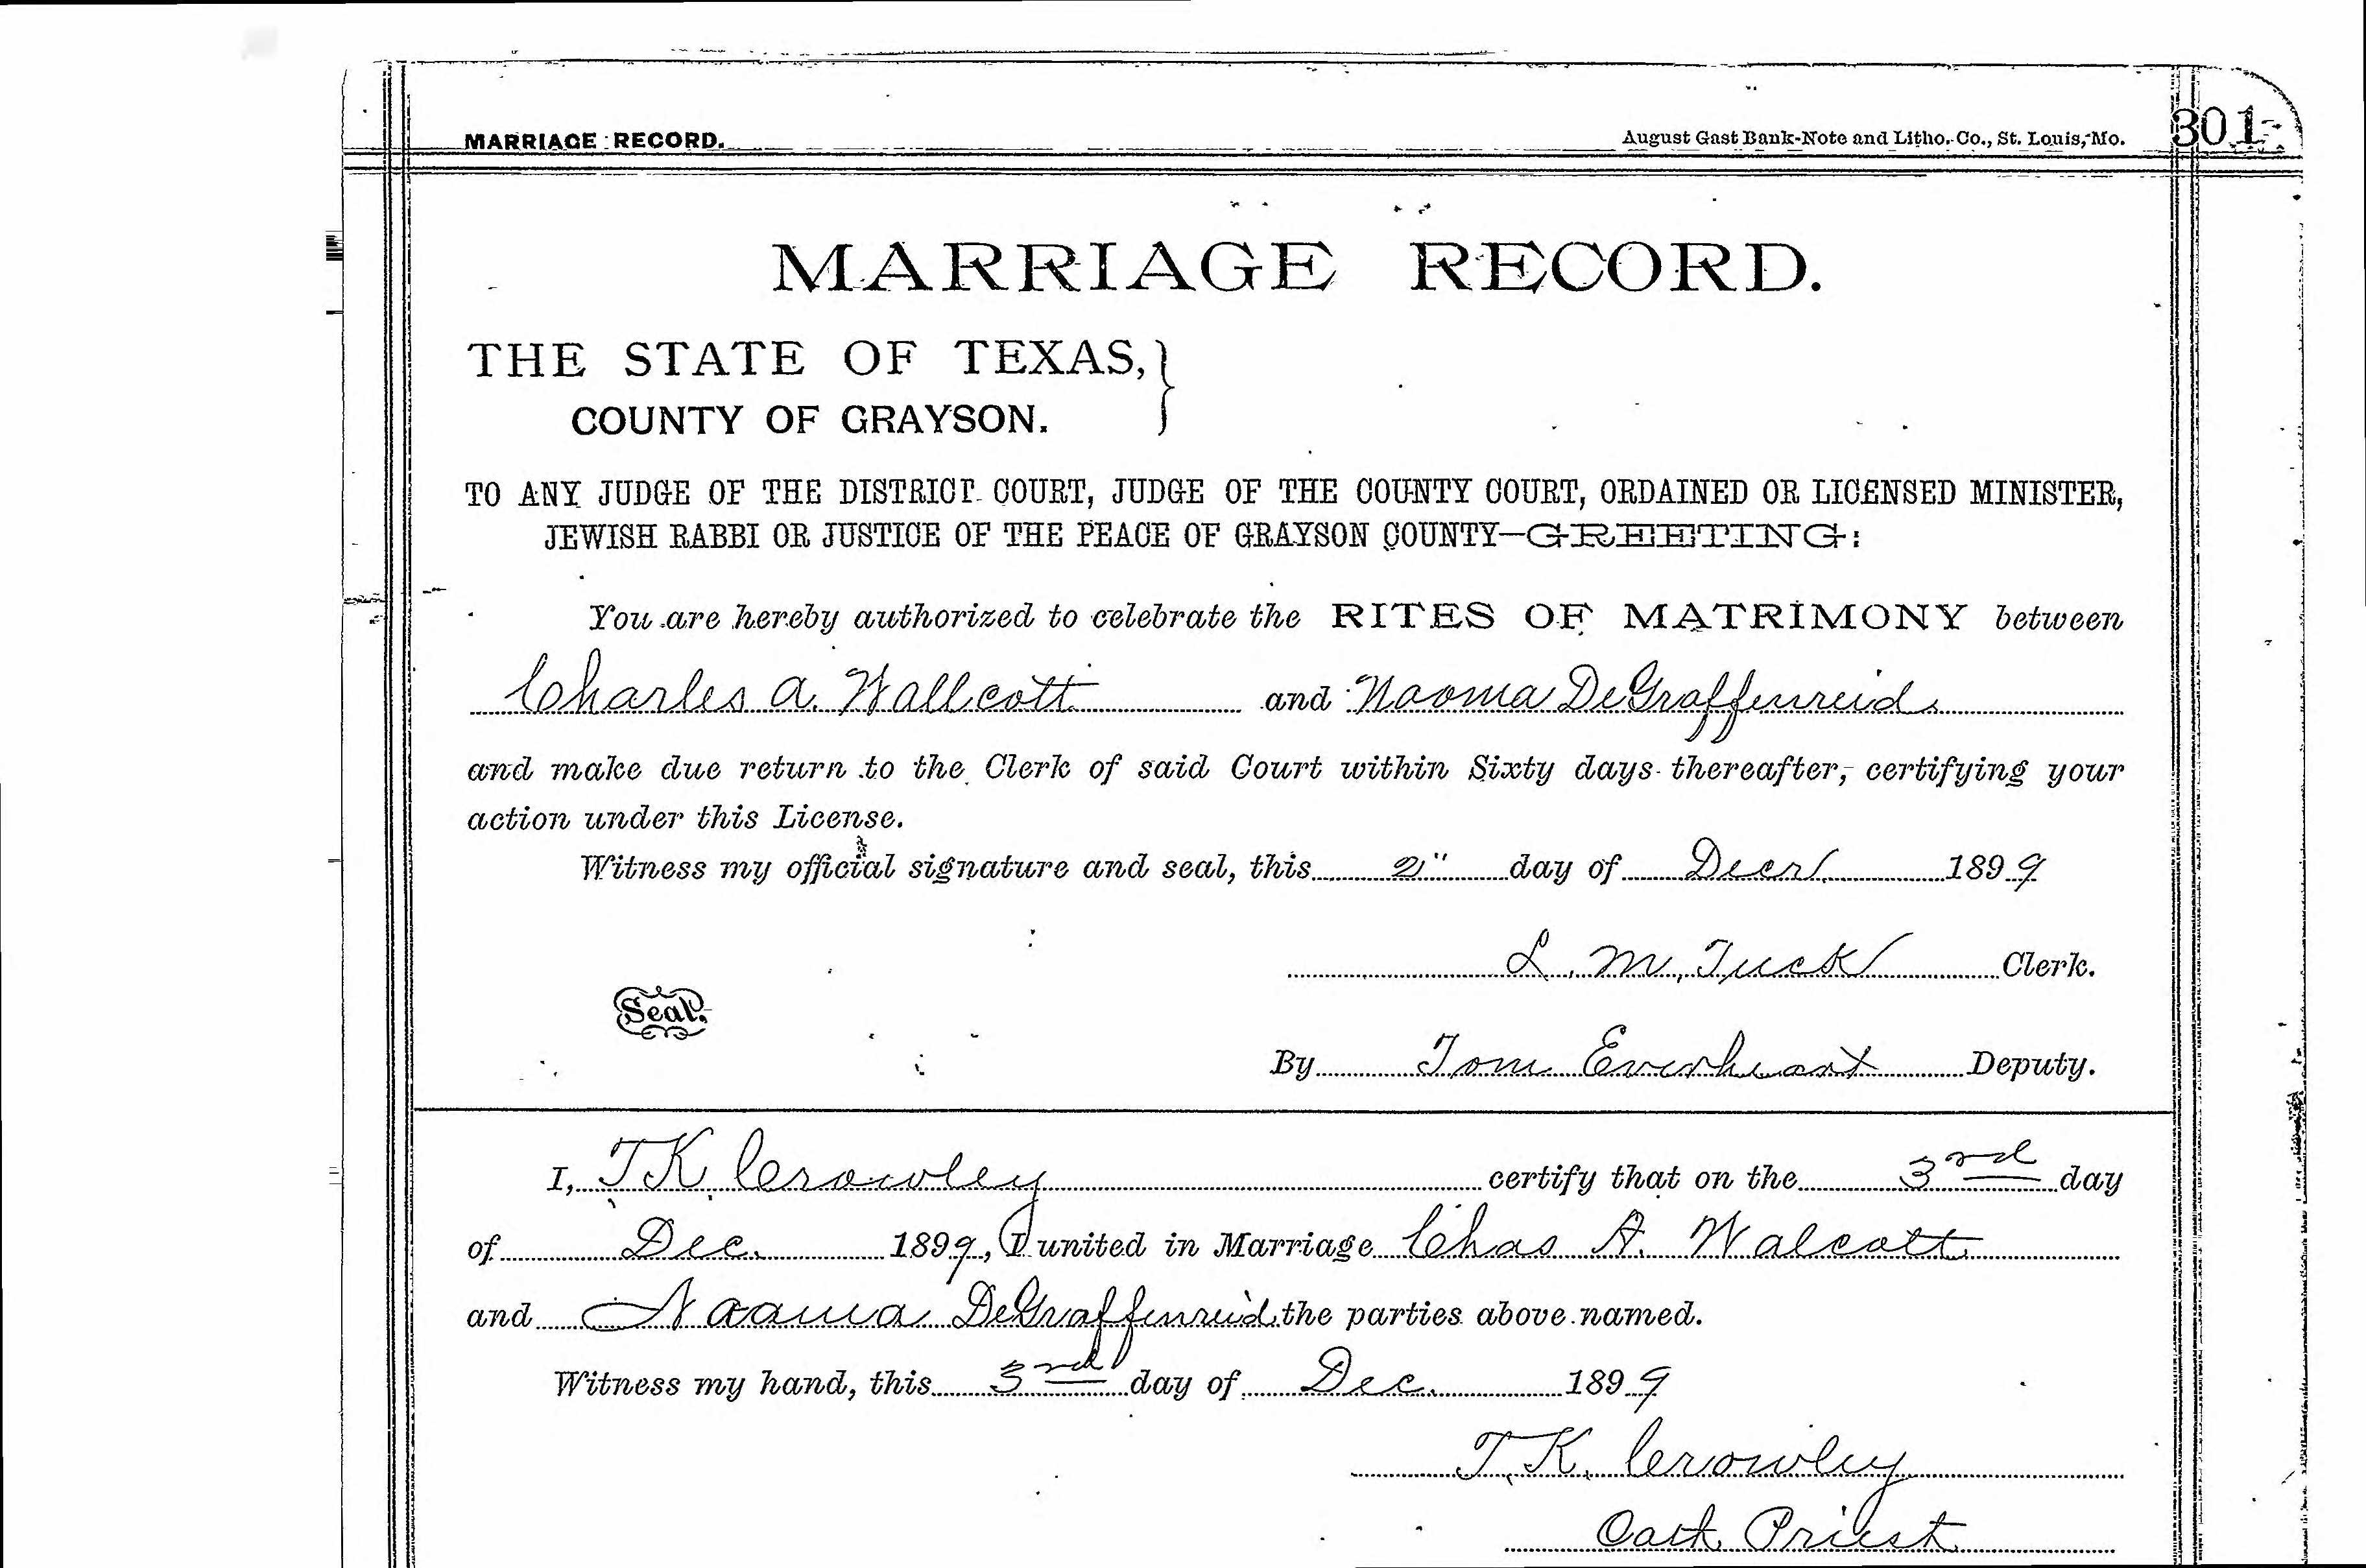 MARRIAGE RECORD. August Gast Bank-Note and Litho. Co., St. Louis, Mo. 301
MARRIAGE RECORD.
THE STATE OF TEXAS,
COUNTY OF GRAYSON.
TO ANY JUDGE OF THE DISTRICT COURT, JUDGE OF THE COUNTY COURT, ORDAINED OR LICENSED MINISTER,
JEWISH RABBI OR JUSTICE OF THE PEACE OF GRAYSON COUNTY—GREETING:
You are hereby authorized to celebrate the RITES OF MATRIMONY between
Charles A. Wallcott and Naoma DeGraffenreid
and make due return to the Clerk of said Court within Sixty days thereafter, certifying your
action under this License.
Witness my official signature and seal, this 2" day of Decr 1899
L. M. Tuck Clerk.
Seal.
By Tom Everheart Deputy.
I, T.K. Crowley certify that on the 3rd day
of Dec. 1899, I united in Marriage Chas A. Walcott
and Naama DeGraffenreid the parties above named.
Witness my hand, this 3rd day of Dec. 1899
T. K. Crowley
Cath. Priest